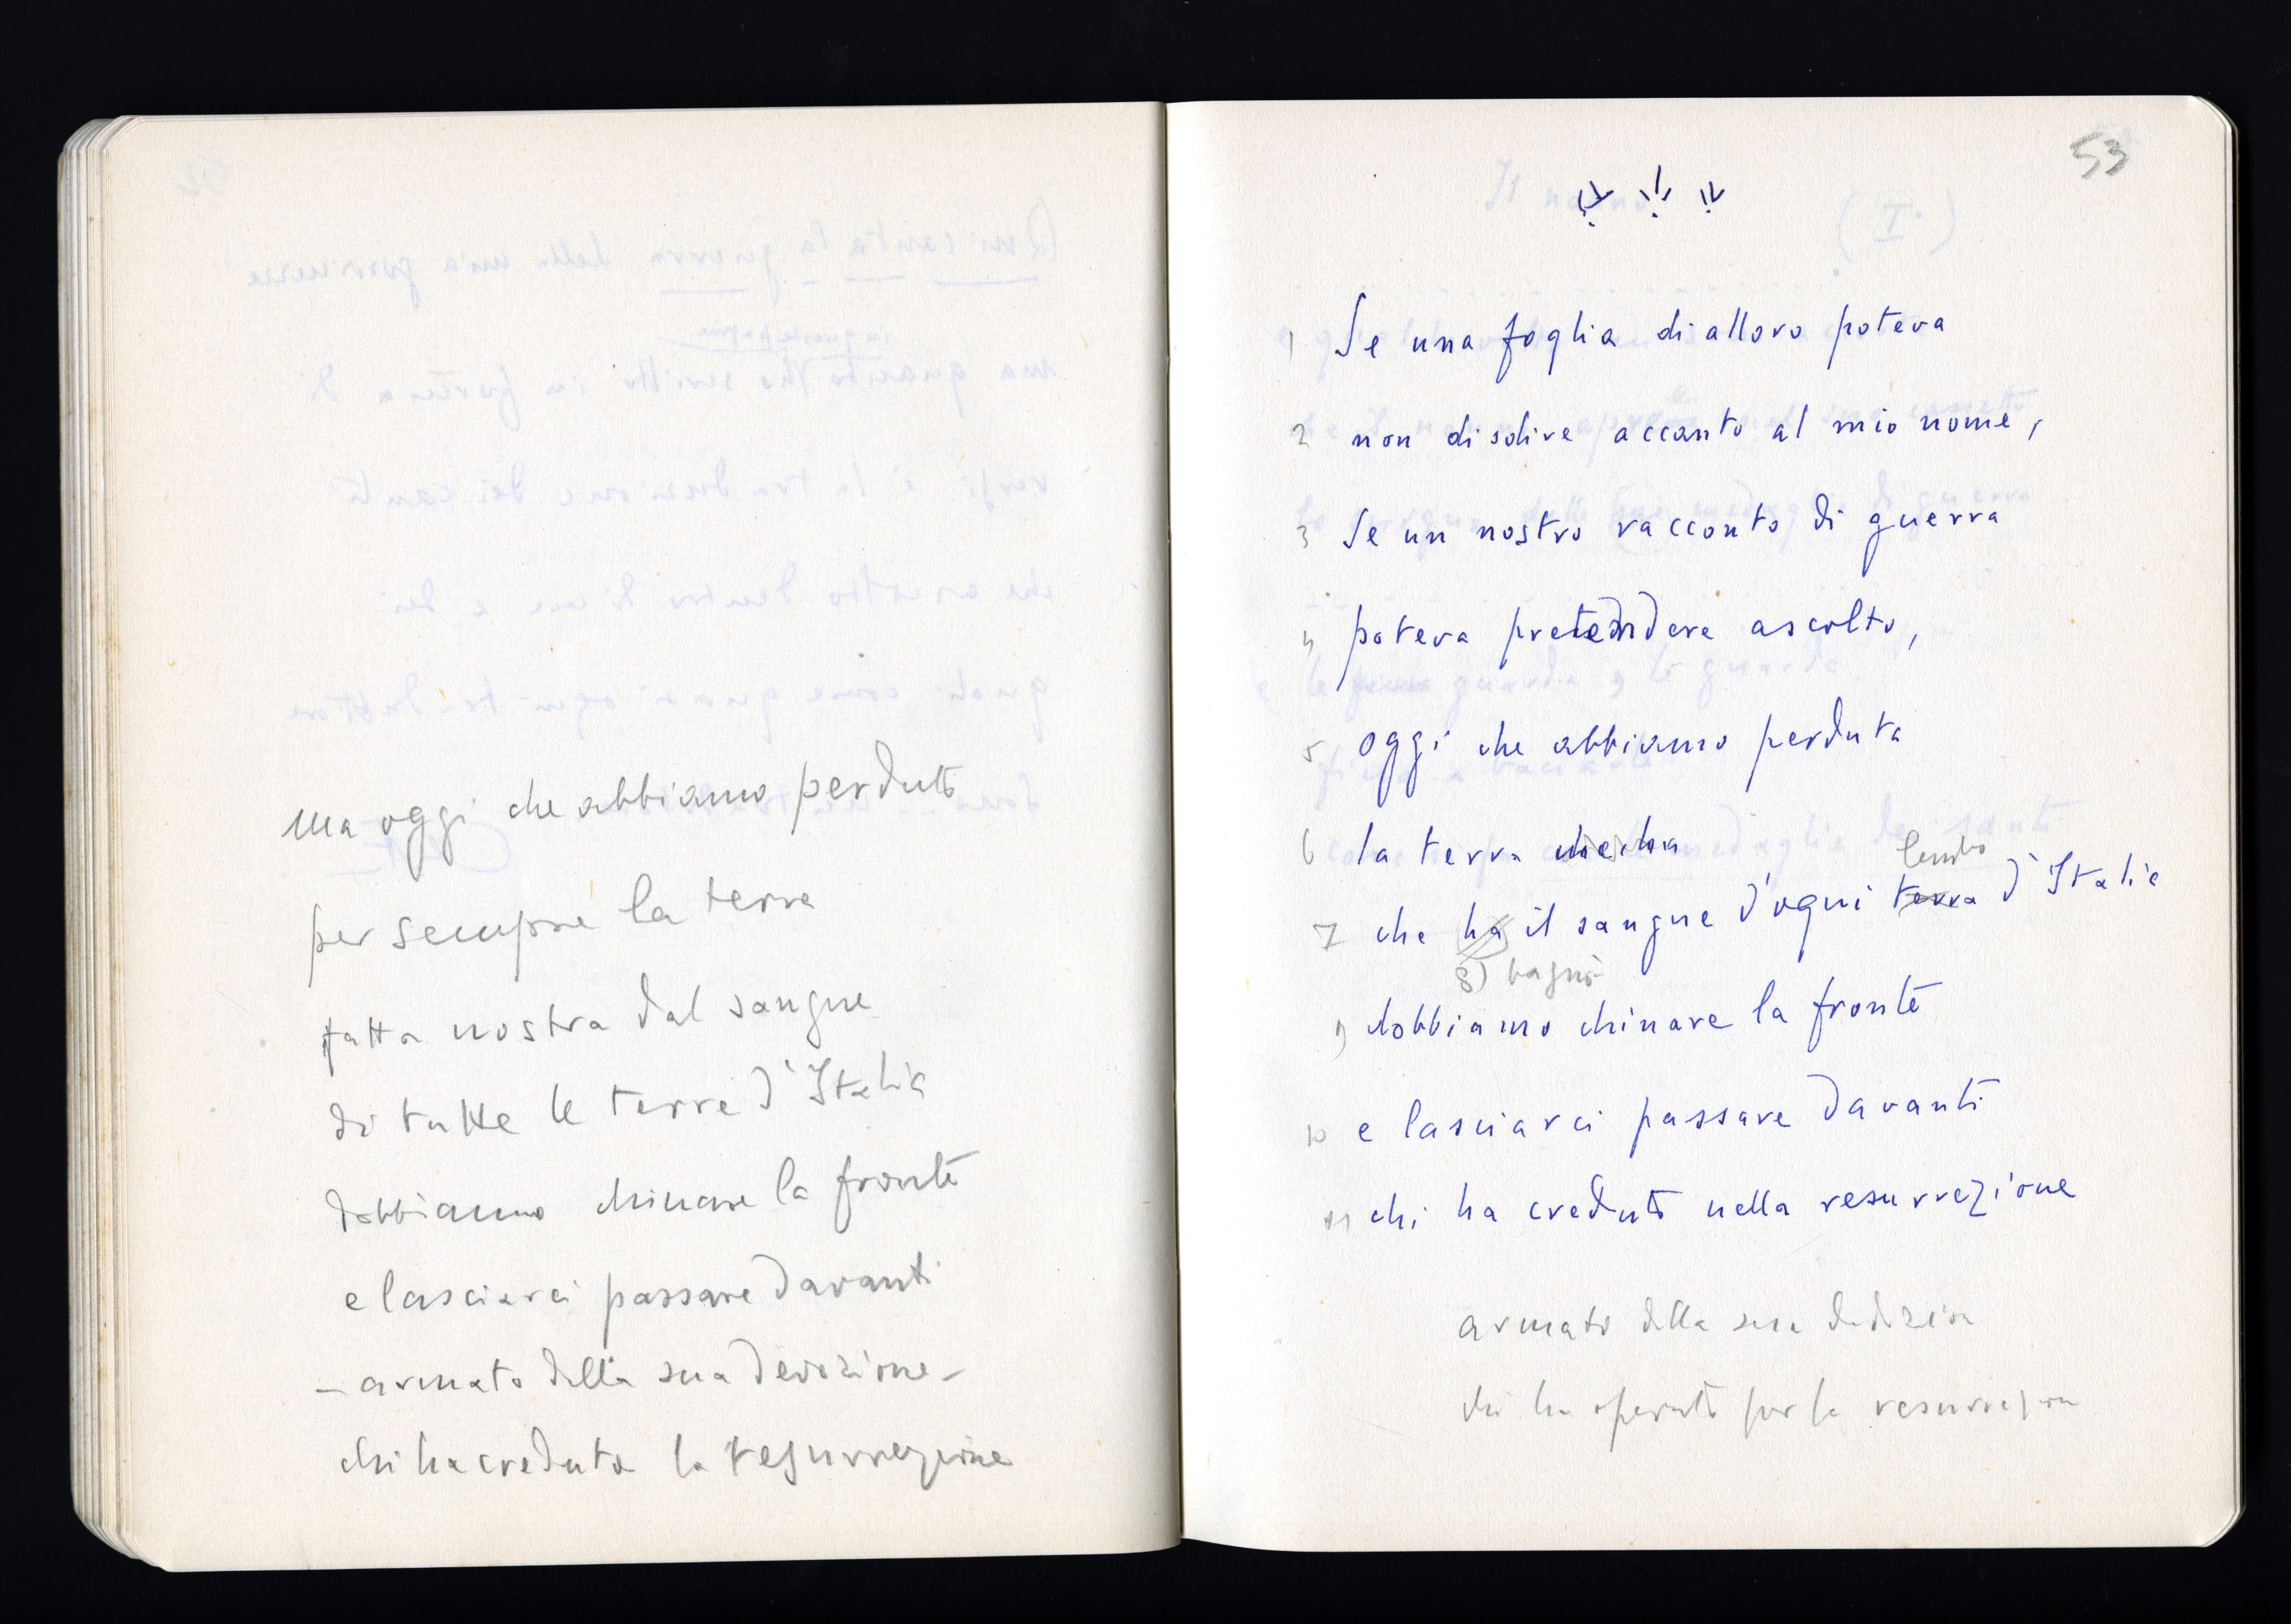 ma oggi che abbiamo perduto
per sempre la terra
fatta nostra dal sangue
di tutte le terre d'Italia
dobbiamo chinare la fronte
e lasciarci passare davanti
– armato della sua devozione –
chi ha creduto la resurrezione
53
1 Se una foglia di alloro poteva
2 non disdire accanto al mio nome,
3 Se un nostro racconto di guerra
4 poteva pretendere ascolto,
5 oggi che abbiamo perduta
6 la terra che ha
lembo
7 che ha il sangue d'ogni terra d'Italia
8) bagnò
9 dobbiamo chinare la fronte
10 e lasciarci passare davanti
11 chi ha creduto nella resurrezione
armato della sua dedizion
chi ha operato per la resurrezion